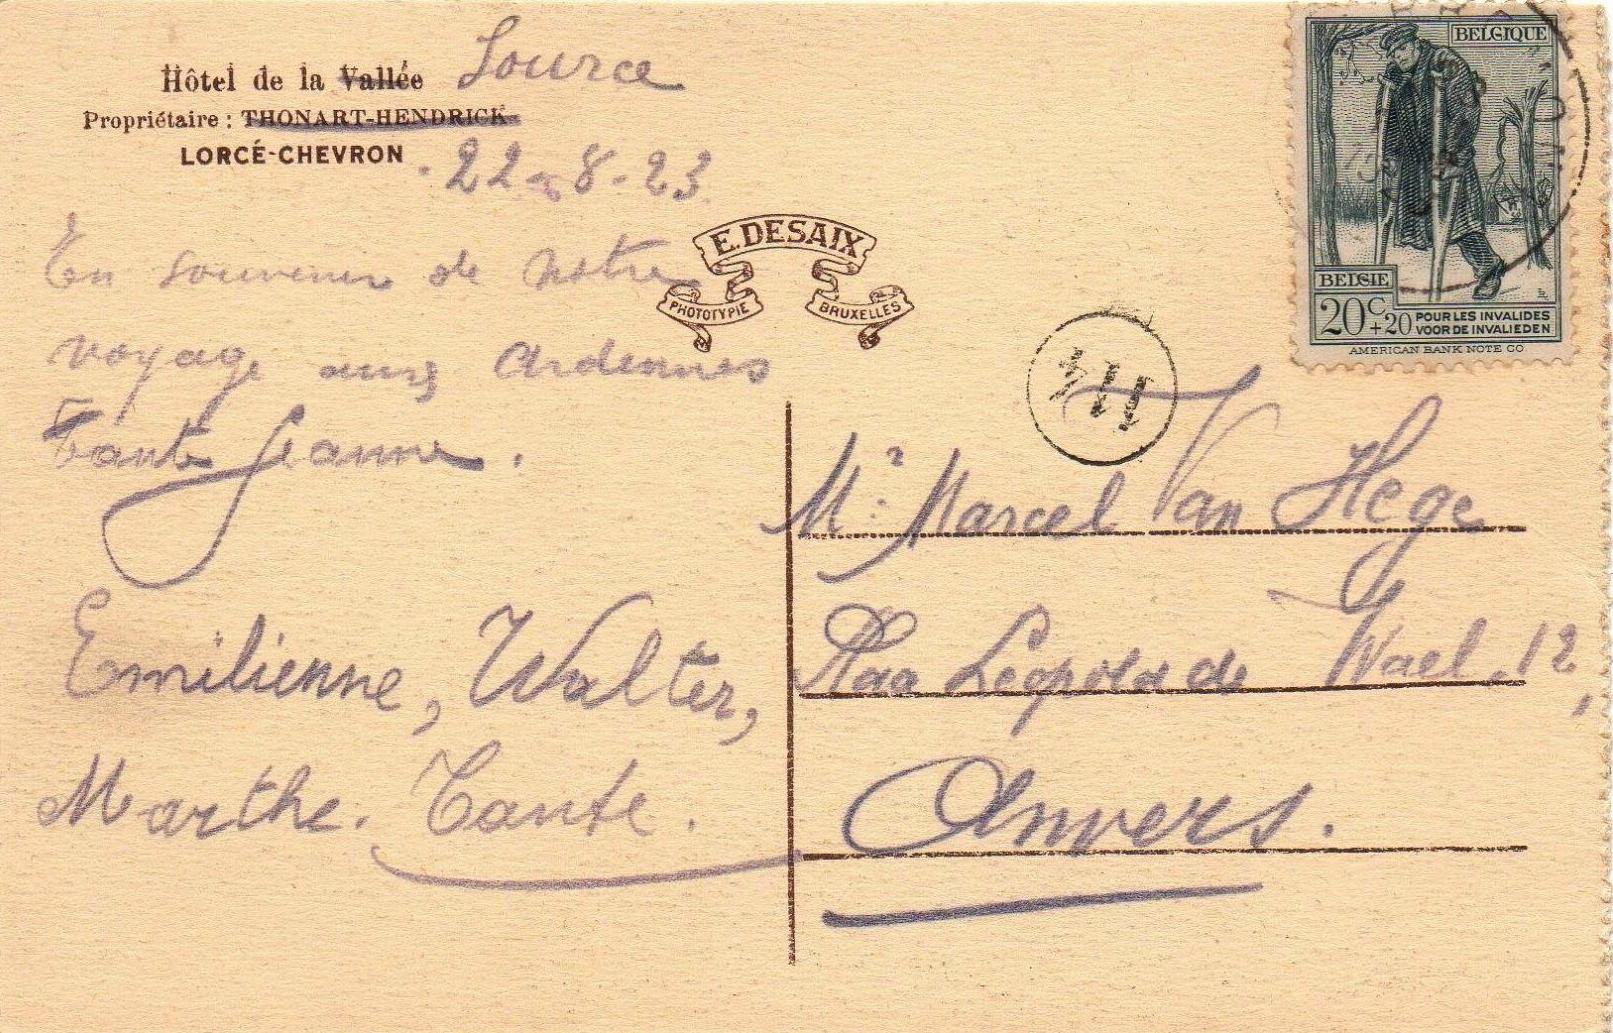 Hôtel de la Vallée Source
Propriétaire : THONART-HENDRICK
LORCÉ-CHEVRON
22-8-23
En souvenir de notre
voyage aux Ardennes
Tante Jeanne.
Emilienne, Walter,
Marthe. Tante.
E. DESAIX
PHOTOTYPIE BRUXELLES
BELGIQUE
BELGIE
20c+20 POUR LES INVALIDES
VOOR DE INVALIEDEN
AMERICAN BANK NOTE CO
Mr. Marcel Van Hege
Léopold de Wael, 12,
Anvers.